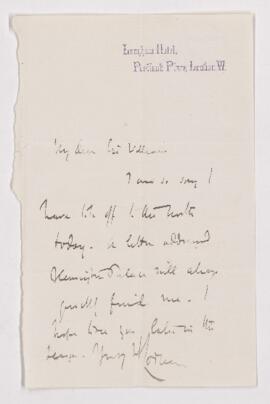 Langham Hotel,
Portland Place, London. W.
My dear Sir William
I am so sorry I
have to be off to the North
today. A letter addressed
Kensington Palace will always
quickly find me. I
hope to see you later in the
Yours